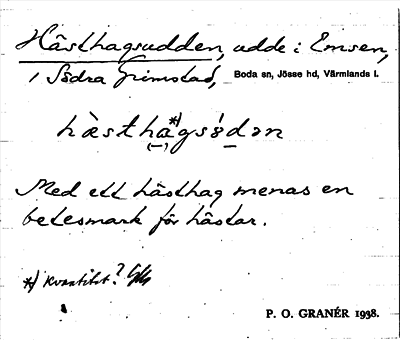 Hästhagsudden, udde i Emsen,
i Södra Grimstad, Boda sn, Jösse hd, Värmlands l.
hàstha*)gsúdən
(–)
Med ett hästhag menas en
betesmark för hästar.
*) kvantitet?
P. O. GRANÉR 1938.